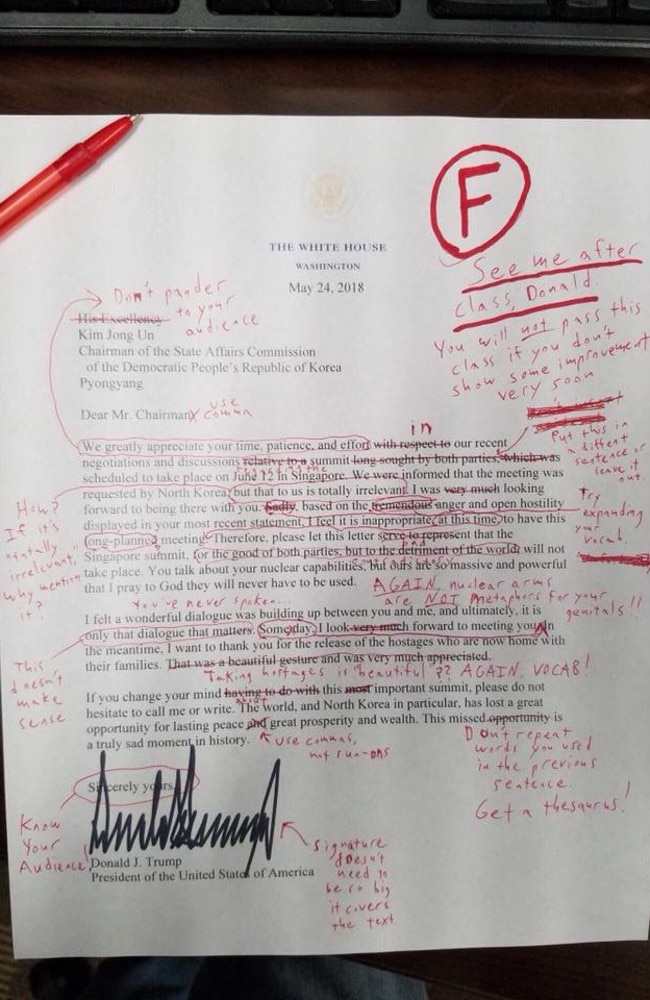 F
See me after
class, Donald.
You will not pass this
class if you don't
show some improvement
very soon
THE WHITE HOUSE
WASHINGTON
May 24, 2018
Don't pander
to your
audience
His Excellency
Kim Jong Un
Chairman of the State Affairs Commission
of the Democratic People's Republic of Korea
Pyongyang
Dear Mr. Chairman:
use
comma
in
We greatly appreciate your time, patience, and effort with respect to our recent
negotiations and discussions relative to a summit long sought by both parties, which was
scheduled to take place on June 12 in Singapore. We were informed that the meeting was
requested by North Korea, but that to us is totally irrelevant. I was very much looking
forward to being there with you. Sadly, based on the tremendous anger and open hostility
displayed in your most recent statement, I feel it is inappropriate, at this time, to have this
long-planned meeting. Therefore, please let this letter serve to represent that the
Singapore summit, for the good of both parties, but to the detriment of the world, will not
take place. You talk about your nuclear capabilities, but ours are so massive and powerful
that I pray to God they will never have to be used.
Put this in
a diffent
sentence or
leave it
out.
Try
expanding
your
vocab.
How?
If it's
"totally
irrelevant,"
why mention
it?
AGAIN, nuclear arms
are NOT metaphors for your
genitals!!
You've never spoken...
I felt a wonderful dialogue was building up between you and me, and ultimately, it is
only that dialogue that matters. Some day, I look very much forward to meeting you. In
the meantime, I want to thank you for the release of the hostages who are now home with
their families. That was a beautiful gesture and was very much appreciated.
This
doesn't
make
sense.
Taking hostages is "beautiful"?? AGAIN, VOCAB!
If you change your mind having to do with this most important summit, please do not
hesitate to call me or write. The world, and North Korea in particular, has lost a great
opportunity for lasting peace and great prosperity and wealth. This missed opportunity is
a truly sad moment in history.
about
Use commas,
not run-ons
Don't repeat
words you used
in the previous
sentence.
Get a thesaurus!
Sincerely yours,
Know
Your
Audience!
Donald J. Trump
President of the United States of America
Signature
doesn't
need to
be so big
it covers
the text.